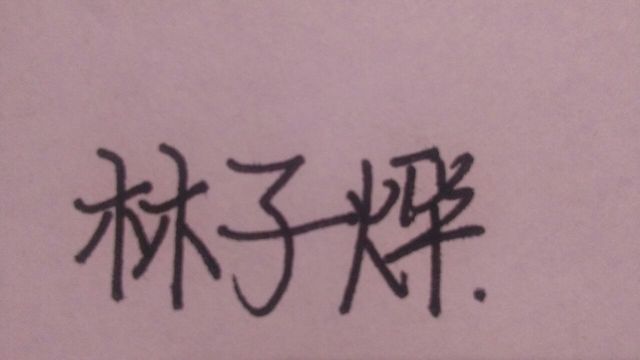 林子烨.